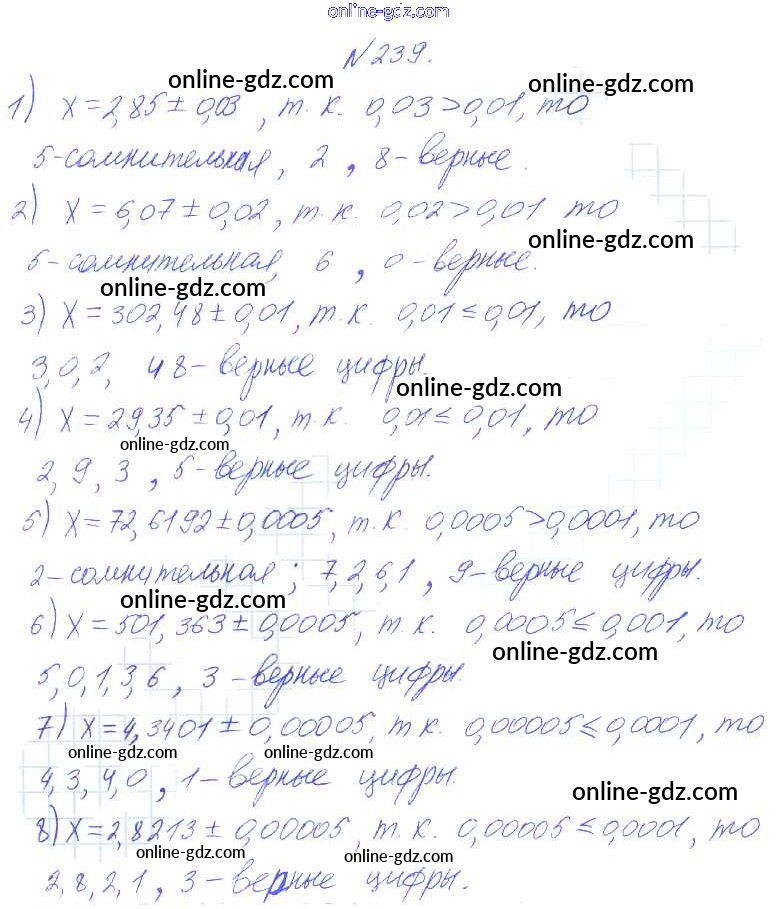 online-gdz.com
№239.
online-gdz.com
online-gdz.com
1) x=2,85±0,03, т.к. 0,03>0,01, то
5-сомнительная, 2, 8-верные.
2) x=6,07±0,02, т.к. 0,02>0,01 то
online-gdz.com
5-сомнительная, 6, 0-верные.
online-gdz.com
3) x=302,48±0,01, т.к. 0,01≤0,01, то
3,0,2, 48-верные цифры.
online-gdz.com
4) x=29,35±0,01, т.к. 0,01≤0,01, то
online-gdz.com
2, 9, 3, 5-верные цифры.
5) x=72,6192±0,0005, т.к. 0,0005>0,0001, то
2-сомнительная; 7,2,6,1, 9-верные цифры.
online-gdz.com
6) x=501,363±0,0005, т.к. 0,0005≤0,001, то
online-gdz.com
5,0,1,3,6, 3-верные цифры.
7) x=4,3401±0,00005, т.к. 0,00005≤0,0001, то
online-gdz.com online-gdz.com
4,3,4,0, 1-верные цифры.
online-gdz.com
8) x=2,8213±0,00005, т.к. 0,00005≤0,0001, то
online-gdz.com online-gdz.com
2,8,2,1, 3-верные цифры.